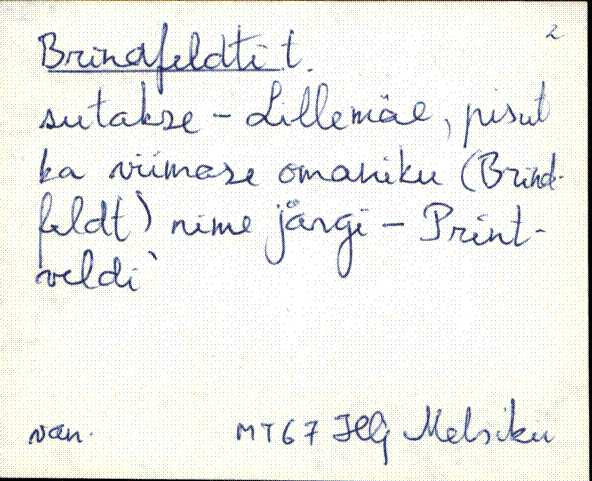 2
Brindfeldti t.
sutakse - Lillemäe, pisut
ka viimase omaniku (Brind-
feldt) nime järgi - Print-
veldi`
van. MT 67 Melsiku